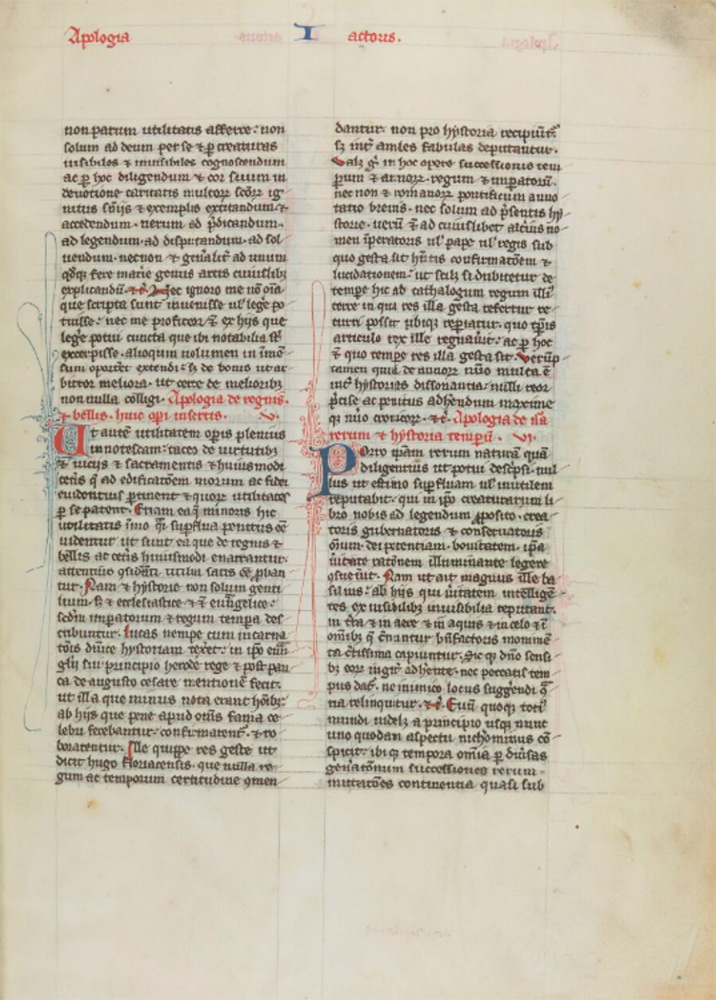 Apologia I actoris.
non parum utilitatis afferre. non
solum ad deum per se & per creaturas
uisibiles & inuisibiles cognoscendum
ac p hoc diligendum & cor suum in
deuotione caritatis multorum scorum ig
nitus & exemplis excitandum &
accedendum. uerum ad p̄dicandum.
ad legendum. ad disputandum. ad sol
uendum. necnon & gn̄alit̉ ad unum
q̄dq fere marie genus artis cuiuslibꝫ
explicandū. &c̄. Nec ignoro me nō oīa
que scripta sunt inuenisse ul̉ lege po
tuisse. nec me profiteor & ex hijs que
lege potui cuncta que ibi notabilia st̄
excerpisse. alioquin uolumen in īmē
sum oporteret extendi. sꝫ de bonis ut ar
bitror meliora. ut certe de melioribꝫ
non nulla collegi. Apologia de regnis.
& bellis. huic op̄i insertis. V.
Ut autē utilitatem op̄is plenius
innotescam. taceo de uirtutibꝫ
& uicijs & sacramentis & huiusmodi
cetis q̄ ad edificatōem morum ac fidei
euidentius ptinent & quorum utilitates
p se patent. Etiam ea q̄ minoris hic
utilitatis īmo q̄ supflua penitus eē
uidentur ut sunt ea que de regnis &
bellis ac cetis huiusmodi enarrantur.
attentius 9sid̉āti utilia satis eē pban
tur. Nam & hystorie non solum genti
lium. sꝫ & ecclesiastice & & euāgelice.
scdm̄ inpatorum & regum tempora des
cribuntur. Lucas nempe cum incarna
tōis dnice hystoriam texet. in ipō euā
glij sui principio herode rege & post pau
ca de augusto cesare mentionē fecit.
ut illa que minus nota erant hōibꝫ.
ab hijs que pene apud om̄s fama ce
lebri ferebantur. confirmarent̉. & ro
borarentur. Ille quippe res geste ut
dicit hugo floriacensis. que nulla re
gum ac temporum certitudine 9men
dantur. non pro hystoria recipiūt̉.
sꝫ int̉ aniles fabulas deputantur.
Valꝫ g̉ in hoc opere successionis tem
porum & annorum. regum & inpatorū.
nec non & romanorum pontificum anno
tatio breuis. nec solum ad p̄sentis hy
storie. uerū & ad cuiuslibet alcius no
men īperatoris ul̉ pape ul̉ regis sub
quo gesta sit hnt̄is confirmatōem &
lucidationem. ut scilꝫ si dubitetur de
tempe hic ad cathalogum regum illỉ
terre in qui res illa gesta refertur re
curri possit ubiq̄ repiatur. quo tp̄is
articulo rex ille regnauit. ac p hoc
& quo tempe res illa gesta sit. Verūp
tamen quia de annorum nūo multa ē
int̉ hystorias dissonantia. nulli reor
p̄cise ac penitus adhendum maxime
q̉ nūo cronicorum. &c̄. Apologia de na
rerum & hystoria temporū. VI.
Porro ip̄am rerum naturā quā
diligentius ut potui desc̄psi. nul
lus ut estimo supfluam ul̉ inutilem
reputabit. qui in ip̄o creaturarum li
bro nobis ad legendum p̄posito. crea
toris gubernatoris & conseruatoris
om̄ium. dei potentiam. bonitatem. ip̄a
ūitate ratōnem illuminante legere
9sueūit. Nam ut ait magnus ille ba
silius. ab hijs qui ūitatem intelligē
tes ex uisibilibꝫ inuisibilia reputant.
in tr̄a & in aere & in aquis & in celo & ī
om̄ibꝫ q̄ c̄nuntur bn̄factoris monimē
ta c̄tissima capiuntur. Sic q̄ dn̄o sensi
bꝫ eorum iugit̉ adhente. nec peccatis tem
pus dat̉. ne inimico locus suggendi q̄
ria relinquitur. &c̄. Cum quoq̄ totỉ
mundi uidelꝫ a principio usq̄ nunc
uno quodam aspectu nichominus cō
spicit̉. ibi q̄ tempora om̄ia p diūsas
gen̄atōnum successiones rerum
mutatōes continentia quasi sub